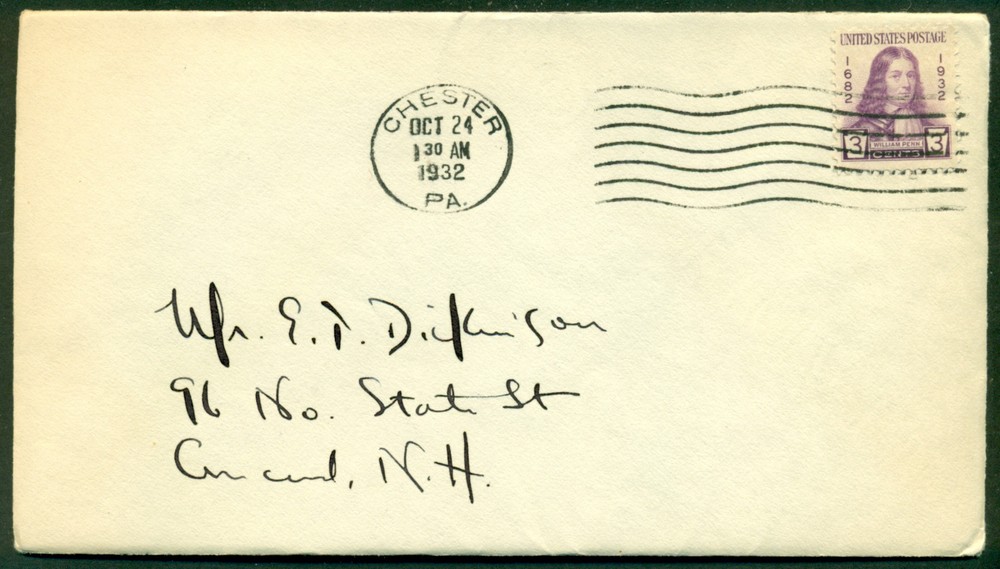 CHESTER
OCT 24
1 30 AM
1932
PA.
UNITED STATES POSTAGE
1682
1932
3
WILLIAM PENN
CENTS
3
Mr. E. T. Dickinson
96 No. State St
Concord, N.H.